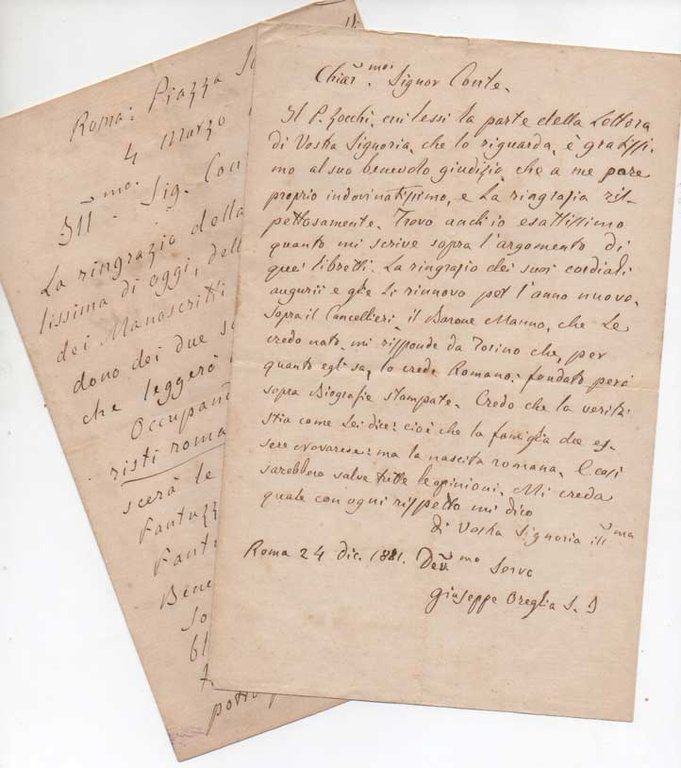 Roma: Piazza
4 Marzo
Ill.mo Sig. Con
La ringrazio della
lissima di oggi, dell
dei Manoscritti
dono dei due
che leggerò
Occupand
risti roma
scerà le
Fantuzz
Fant
Bene
So
bl
Chiar.moi Signor Conte.
Il P. Zocchi, cui lessi la parte della Lettera
di Vostra Signoria, che lo riguarda, è gratissi-
mo al suo benevolo giudizio, che a me pare
proprio indovinatissimo, e La ringrazia ris-
pettosamente. Trovo anch'io esattissimo
quanto mi scrive sopra l'argomento di
quei libretti. La ringrazio dei suoi cordiali
augurii e glie li rinnovo per l'anno nuovo.
Sopra il Cancellieri, il Barone Manno, che Le
credo noto mi risponde da Torino che, per
quanto egli sa, lo crede Romano: fondato però
sopra Biografie stampate. Credo che la verità
stia come Lei dice: cioè che la famiglia dee es-
sere novarese: ma la nascita romana. E così
sarebbero salve tutte le opinioni. Mi creda
quale con ogni rispetto mi dico
di Vostra Signoria ill.ma
Roma 24 dic. 1881. Dev.mo Servo
Giuseppe Oreglia S. J